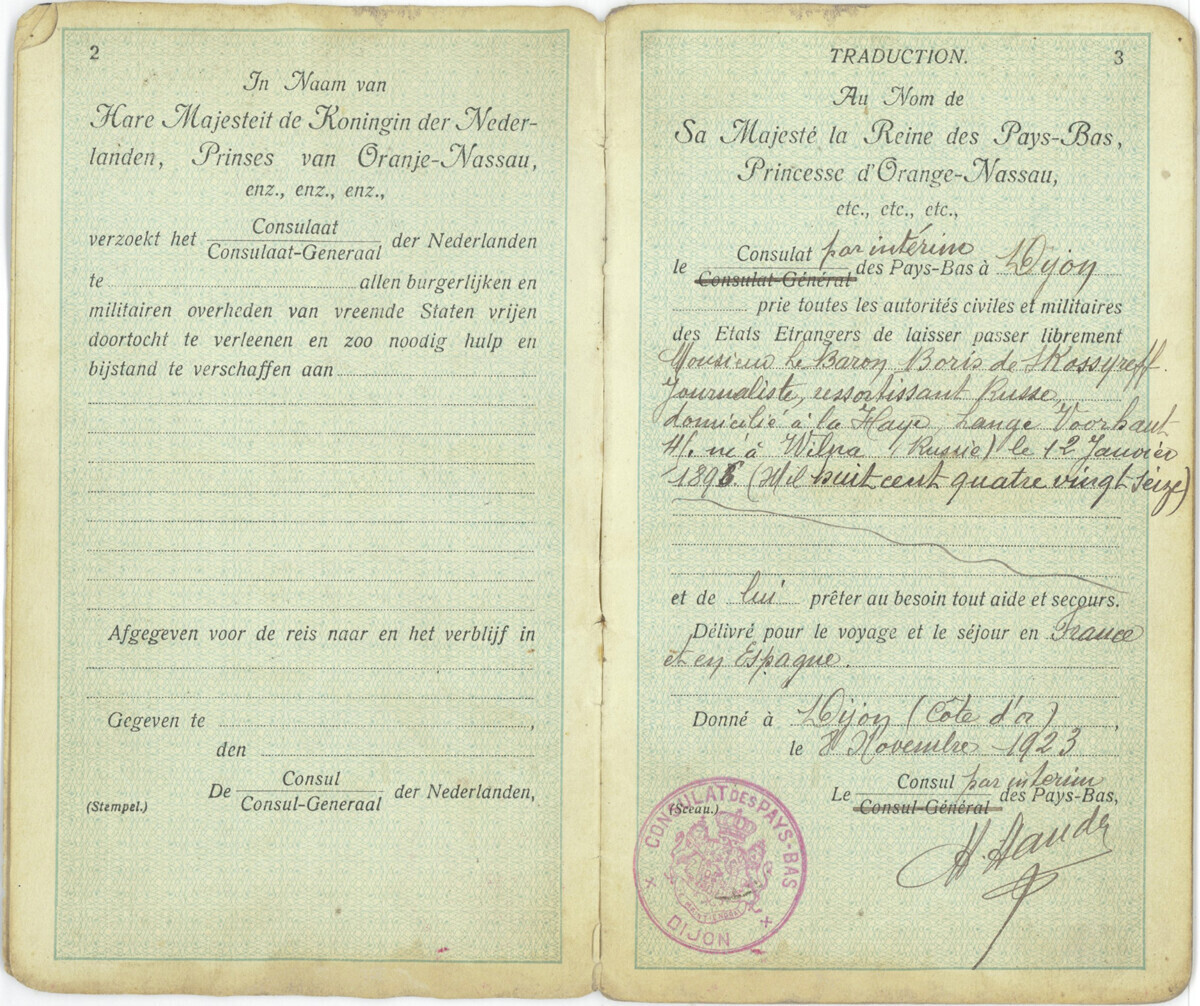 2
In Naam van
Hare Majesteit de Koningin der Neder-
landen, Prinses van Oranje-Nassau,
enz., enz., enz.,
verzoekt het Consulaat
Consulaat-Generaal der Nederlanden
te allen burgerlijken en
militairen overheden van vreemde Staten vrijen
doortocht te verleenen en zoo noodig hulp en
bijstand te verschaffen aan
Afgegeven voor de reis naar en het verblijf in
Gegeven te ,
den
De Consul
Consul-Generaal der Nederlanden,
(Stempel.)
TRADUCTION. 3
Au Nom de
Sa Majesté la Reine des Pays-Bas,
Princesse d'Orange-Nassau,
etc., etc., etc.,
le Consulat par intérim
Consulat-Général des Pays-Bas à Dijon
prie toutes les autorités civiles et militaires
des Etats Etrangers de laisser passer librement
Monsieur le Baron Boris de Skossyreff.
Journaliste, ressortissant Russe,
domicilié à la Haye, Lange Voorhaut
41. né à Wilna (Russie) le 12 Janvier
1896 (Mil huit cent quatre vingt seize)
et de lui prêter au besoin tout aide et secours.
Délivré pour le voyage et le séjour en France
et en Espagne.
Donné à Dijon (Côte d'or) ,
le 8 Novembre 1923
Le Consul par intérim
Consul-Général des Pays-Bas,
(Sceau.)
CONSULAT DES PAYS-BAS
DIJON